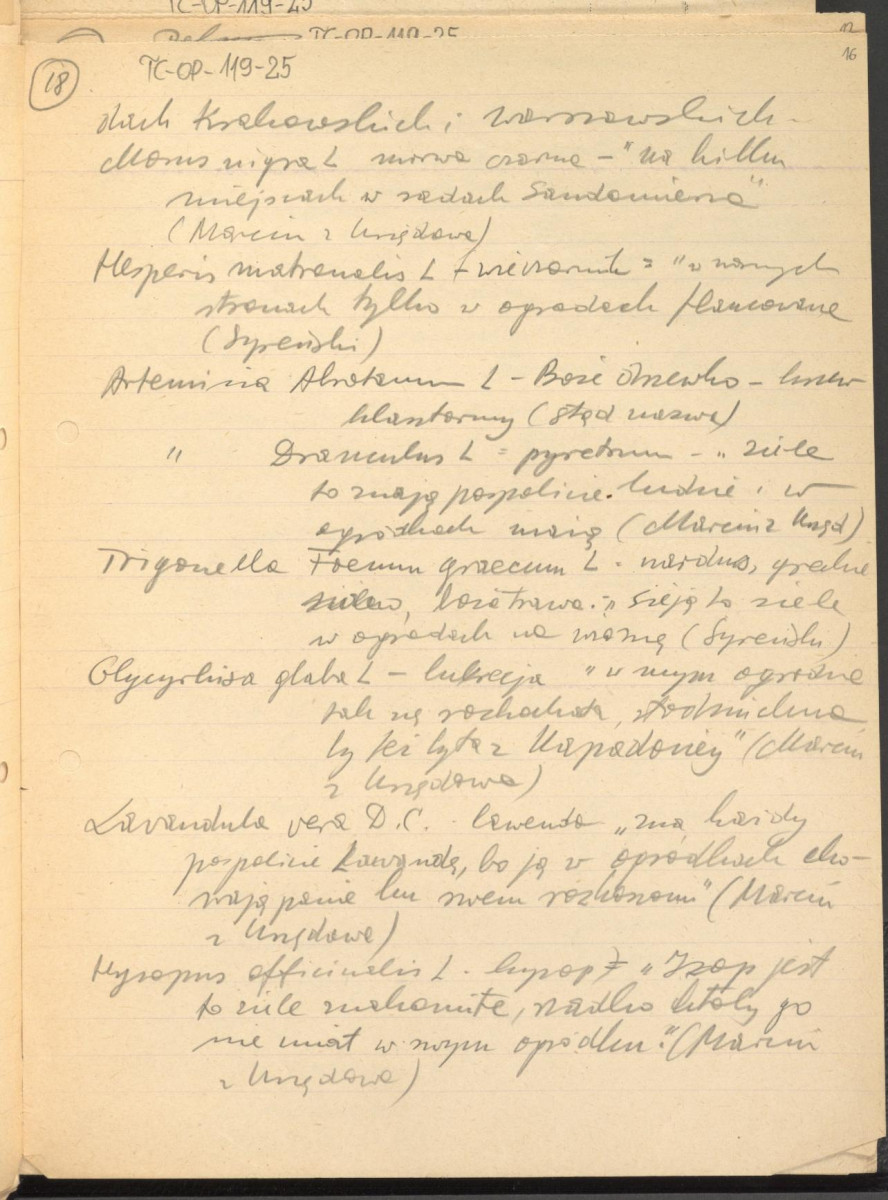 TC-OP-119-25
TC-OP-119-25
12
16
18
TC-OP-119-25
dach Krakowskich i warszawskich -
Morus nigra L morwa czarna - "na kilku
miejscach w sadach Sandomierza"
(Marcin z Urzędowa)
Hesperis matronalis L - wieczornik = "w naszych
stronach tylko w ogrodach flancowane
(Syreński)
Artemisia Abrotanum L - Boże drzewko - krzew
klasztorny (stąd nazwa)
" Dranculus L = pyretrum - „ ziele
to znają pospolicie ludzie i w
ogródkach mają (Marcin z Urzęd)
Trigonella Foenum graecum L - nardus, greckie
siano, boża trawa - „ sieją to ziele
w ogrodach na wiosnę (Syreński)
Glycyrhisa glaba L - lukrecja " w mym ogrodzie
tak się rozkochała,
by też była z Kapadoniey" (Marcin
z Urzędowa)
Lavandula vera D.C. - lawenda „zna każdy
pospolicie Lawandę, bo ją w ogródkach cho-
wają panie ku swem rozkoszom" (Marcin
z Urzędowa)
Hysopus officinalis L - hyzop „Izop jest
to ziele znakomite, rzadko któby go
nie miał w swym ogródku." (Marcin
z Urzędowa)